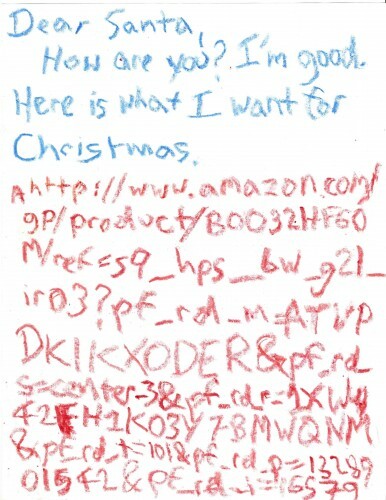 Dear Santa,
How are you? I'm good.
Here is what I want for
Christmas.
http://www.amazon.com/
gp/product/B0032HF60
M/ref=s9_hps_bw_g21_
ir03?pf_rd_m=ATVP
DKIKX0DER&pf_rd_
s=center-3&pf_rd_r=1XWH
42FH1K03Y78MWQNM
&pf_rd_t=101&pf_rd_p=13287
01542&pf_rd_i=16579